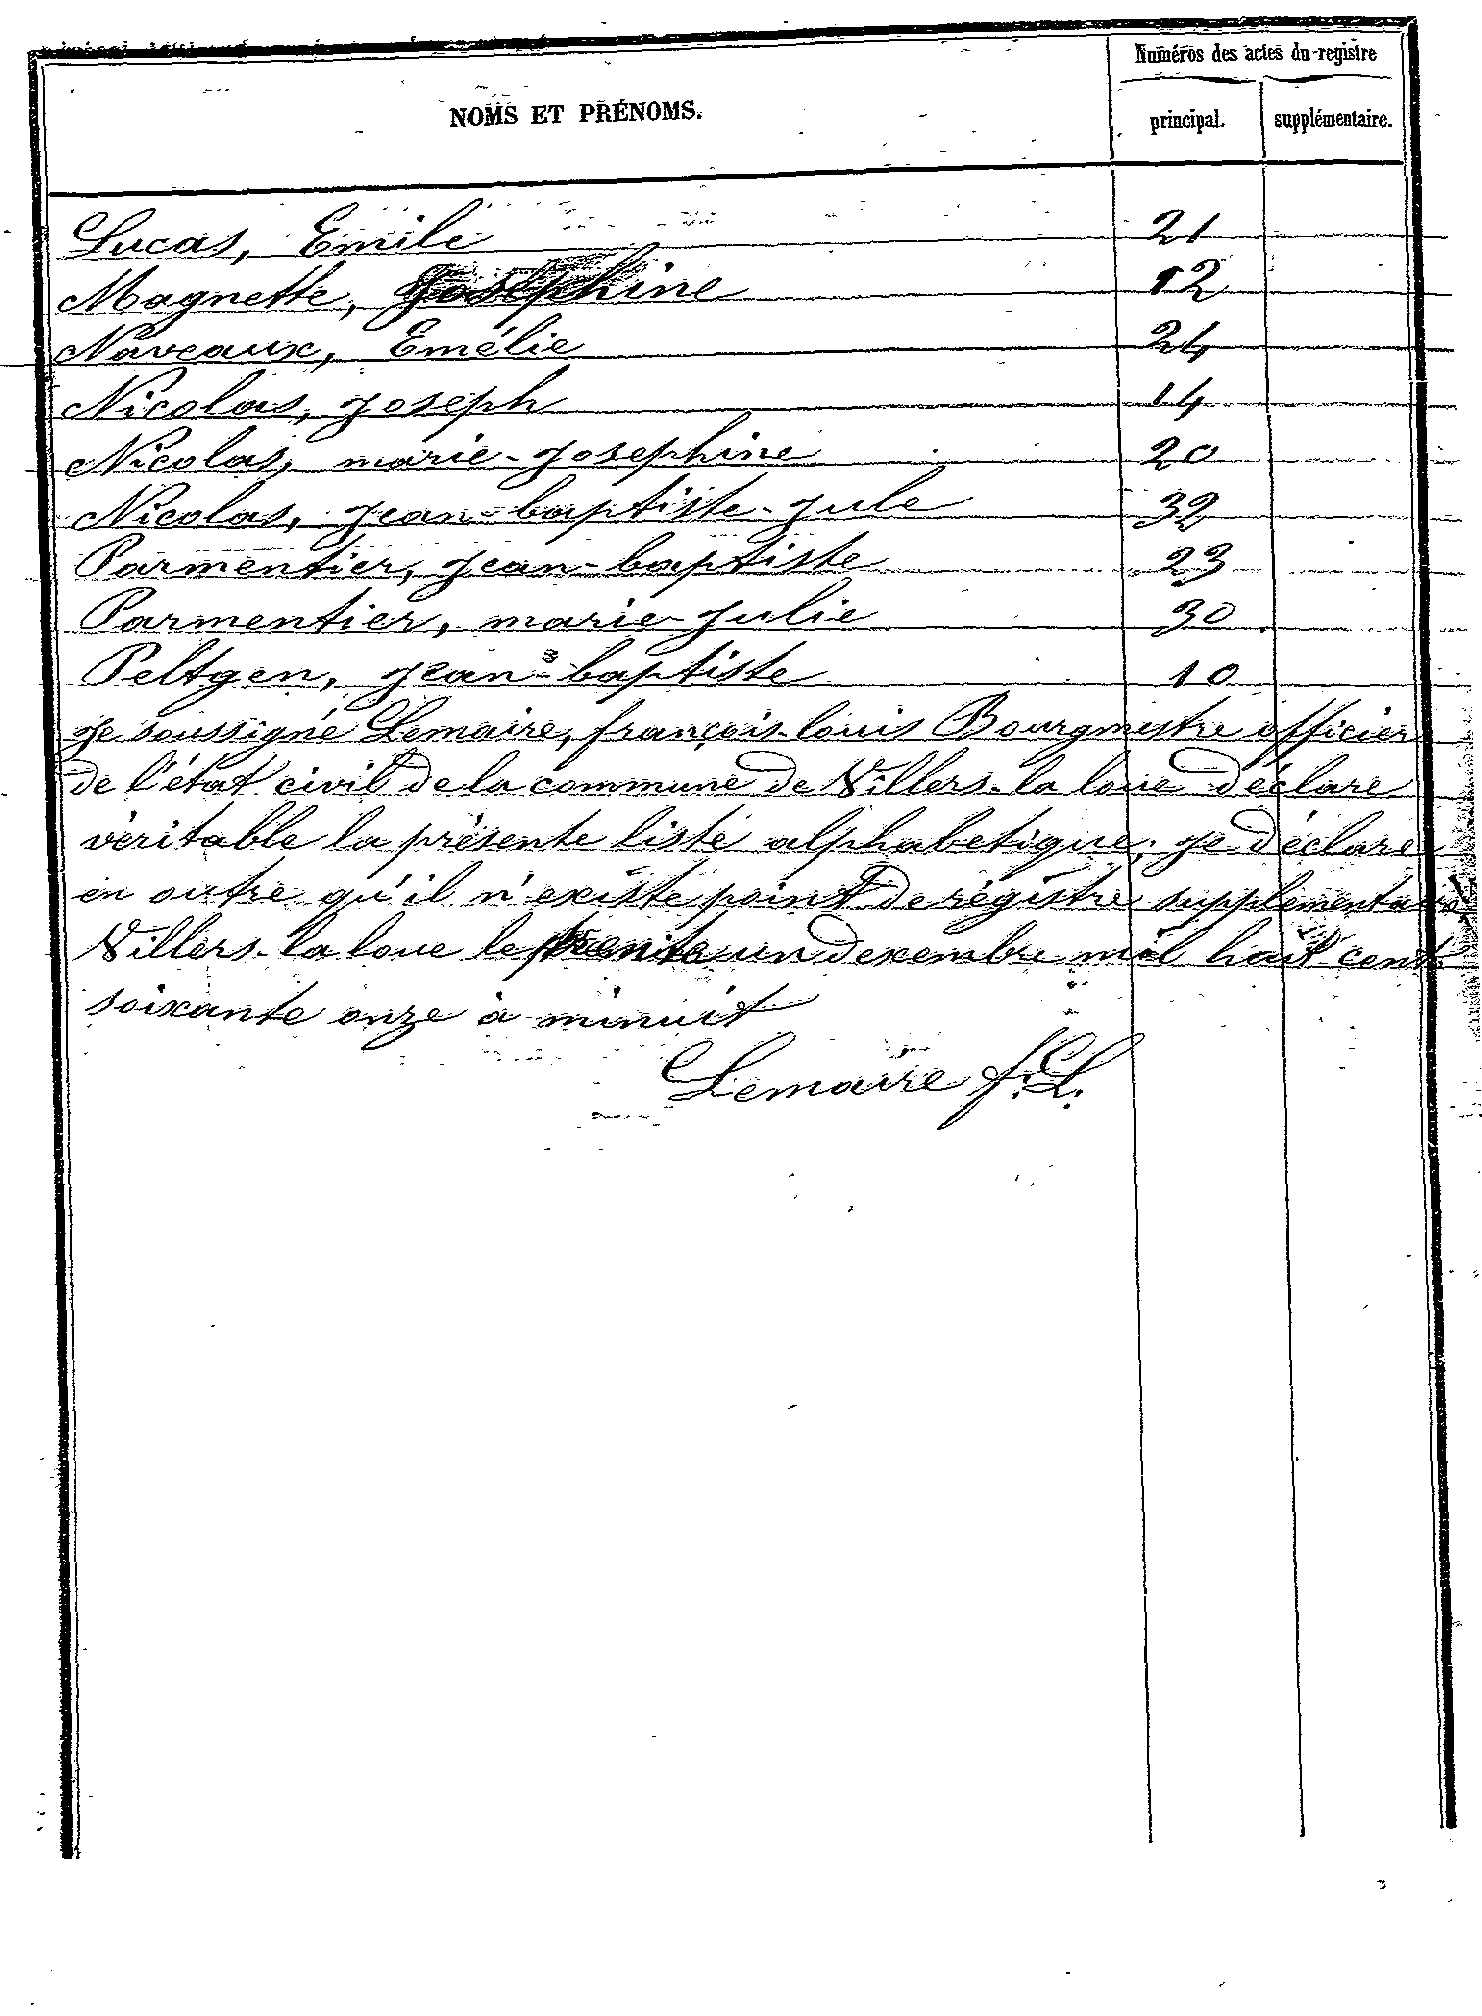 Numéros des actes du registre
NOMS ET PRÉNOMS.
principal. supplémentaire.
Lucas, Emile 21
Magnette, Joséphine 12
Naveaux, Emélie 24
Nicolas, Joseph 14
Nicolas, marie-Josephine 20
Nicolas, Jean-baptiste-Jule 32
Parmentier, Jean-baptiste 23
Parmentier, marie-Julie 30
Peltgen, Jean-baptiste 10
Je soussigné Lemaire, françois-louis Bourgmestre officier
de l'état civil de la commune de Villers-la loue déclare
véritable la présente liste alphabetique; je déclare
en outre qu'il n'existe point de régistre supplémentaire
Villers-la loue le trente un dexembre mil huit cent
soixante onze à minuit
Lemaire f.L.